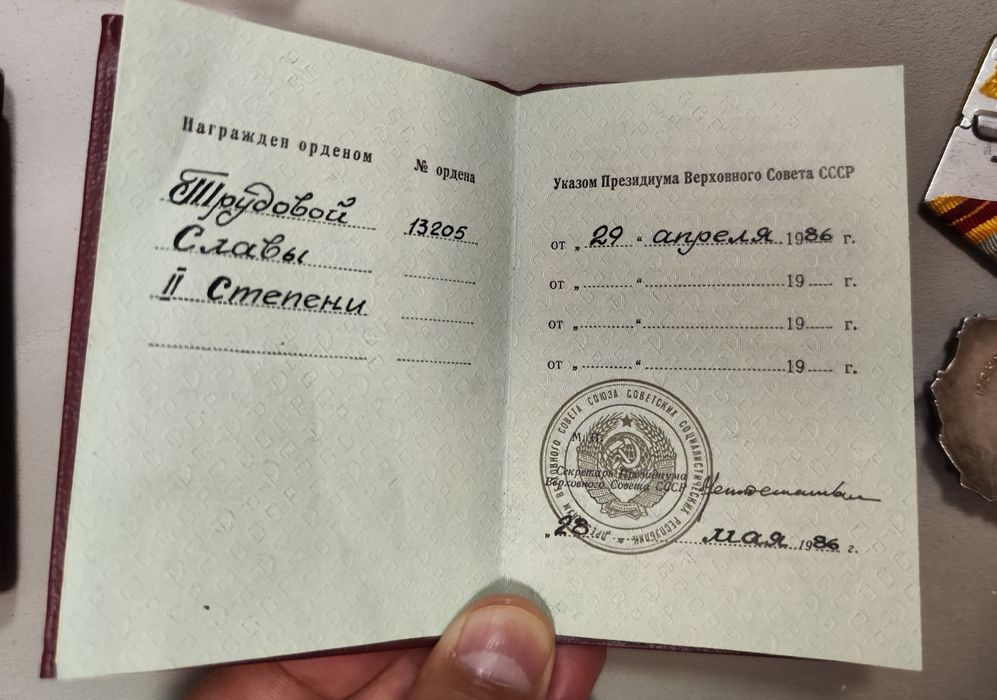 Награжден орденом
№ ордена
Трудовой
13205
Славы
II Степени
Указом Президиума Верховного Совета СССР
от „ 29 “ апреля 1986 г.
от „ “ 19 г.
от „ “ 19 г.
от „ “ 19 г.
ПРЕЗИДИУМ ВЕРХОВНОГО СОВЕТА СОЮЗА СОВЕТСКИХ СОЦИАЛИСТИЧЕСКИХ РЕСПУБЛИК
М. П.
Секретарь Президиума
Верховного Совета СССР
„28 мая 1986 г.